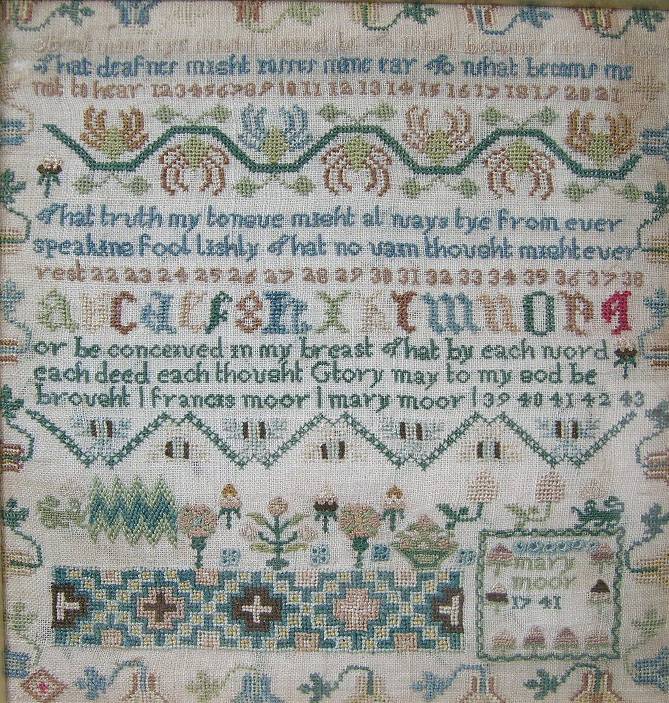 That deafnes might posses mine ear To what becoms me
not to hear 1 2 3 4 5 6 7 8 9 10 11 12 13 14 15 16 17 18 19 20 21
That truth my tongue might al ways tye from ever
speaking fool lishly That no vain thought might ever
rest 22 23 24 25 26 27 28 29 30 31 32 33 34 35 36 37 38
A B C d E f g h I K l m n o p q
or be conceived in my breast That by each word
each deed each thought Glory may to my god be
brought | francis moor | mary moor | 39 40 41 42 43
mary
moor
17 41